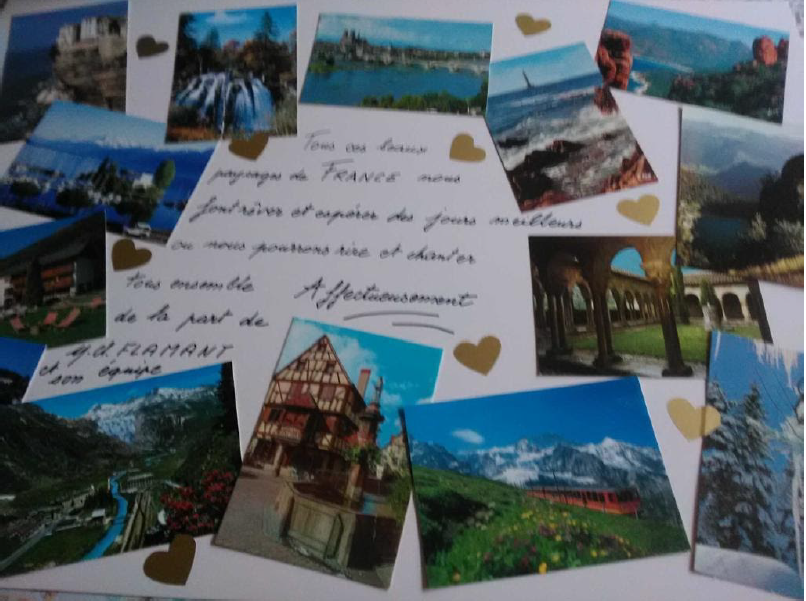 Tous ces beaux
paysages de FRANCE nous
font rêver et espérer des jours meilleurs
ou nous pourrons rire et chanter
tous ensemble Affectueusement
de la part de
FLAMANT
et son équipe